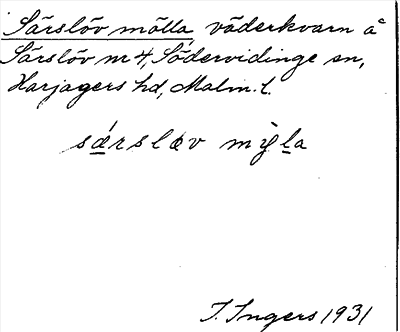 Särslöv mölla, väderkvarn å
Särslöv nr 4, Södervidinge sn,
Harjagers hd, Malm. l.
særsløv mỳla
I. Ingers 1931